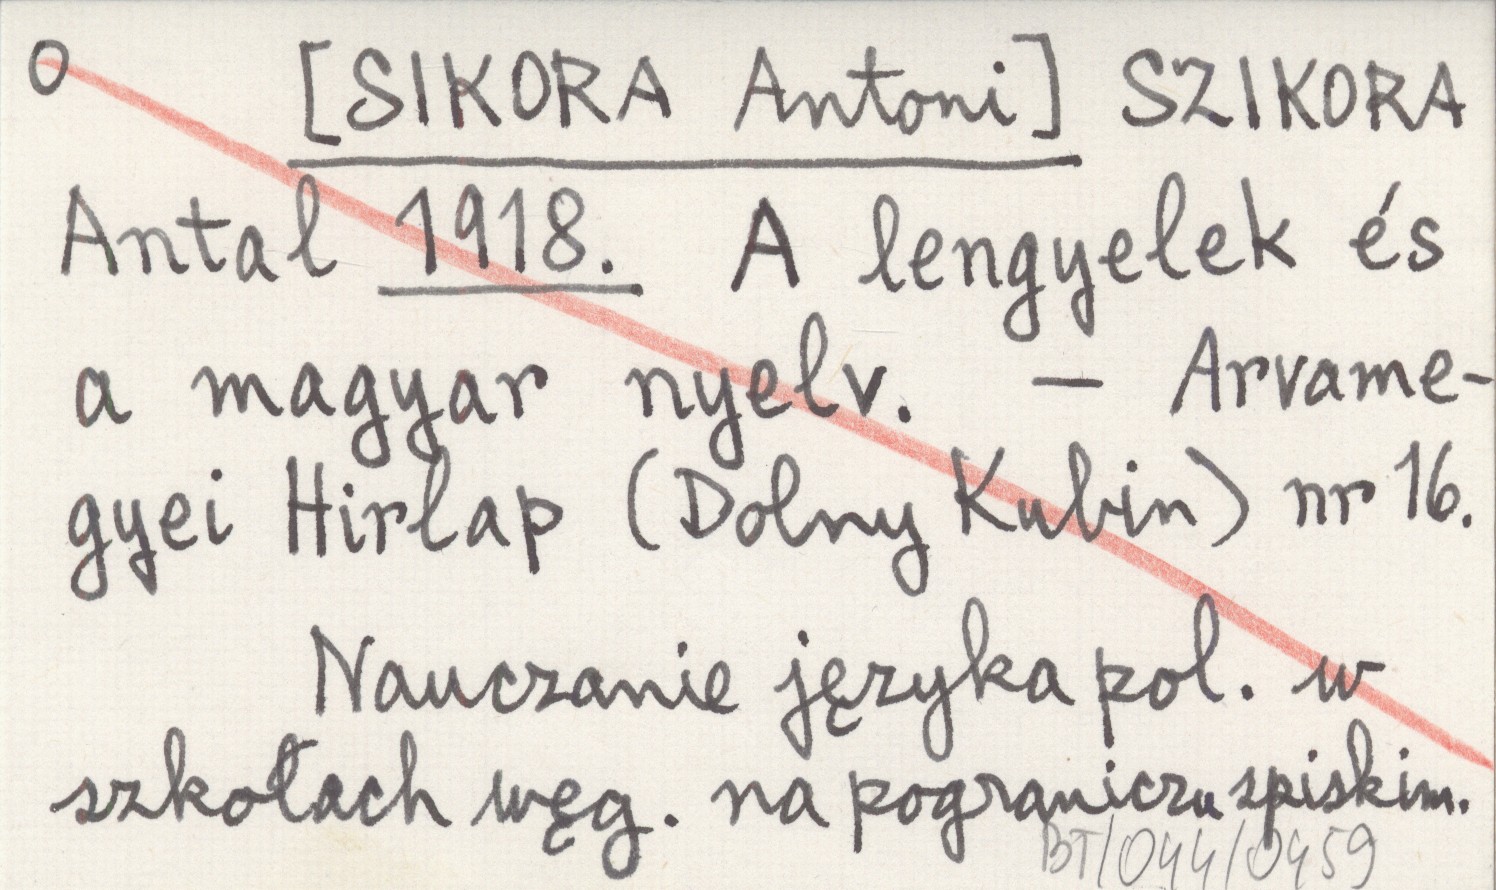 O [SIKORA Antoni] SZIKORA
Antal 1918. A lengyelek és
a magyar nyelv. — Arvame-
gyei Hirlap (Dolny Kubin) nr 16.
Nauczanie języka pol. w
szkołach węg. na pograniczu spiskim.
BT/044/0459